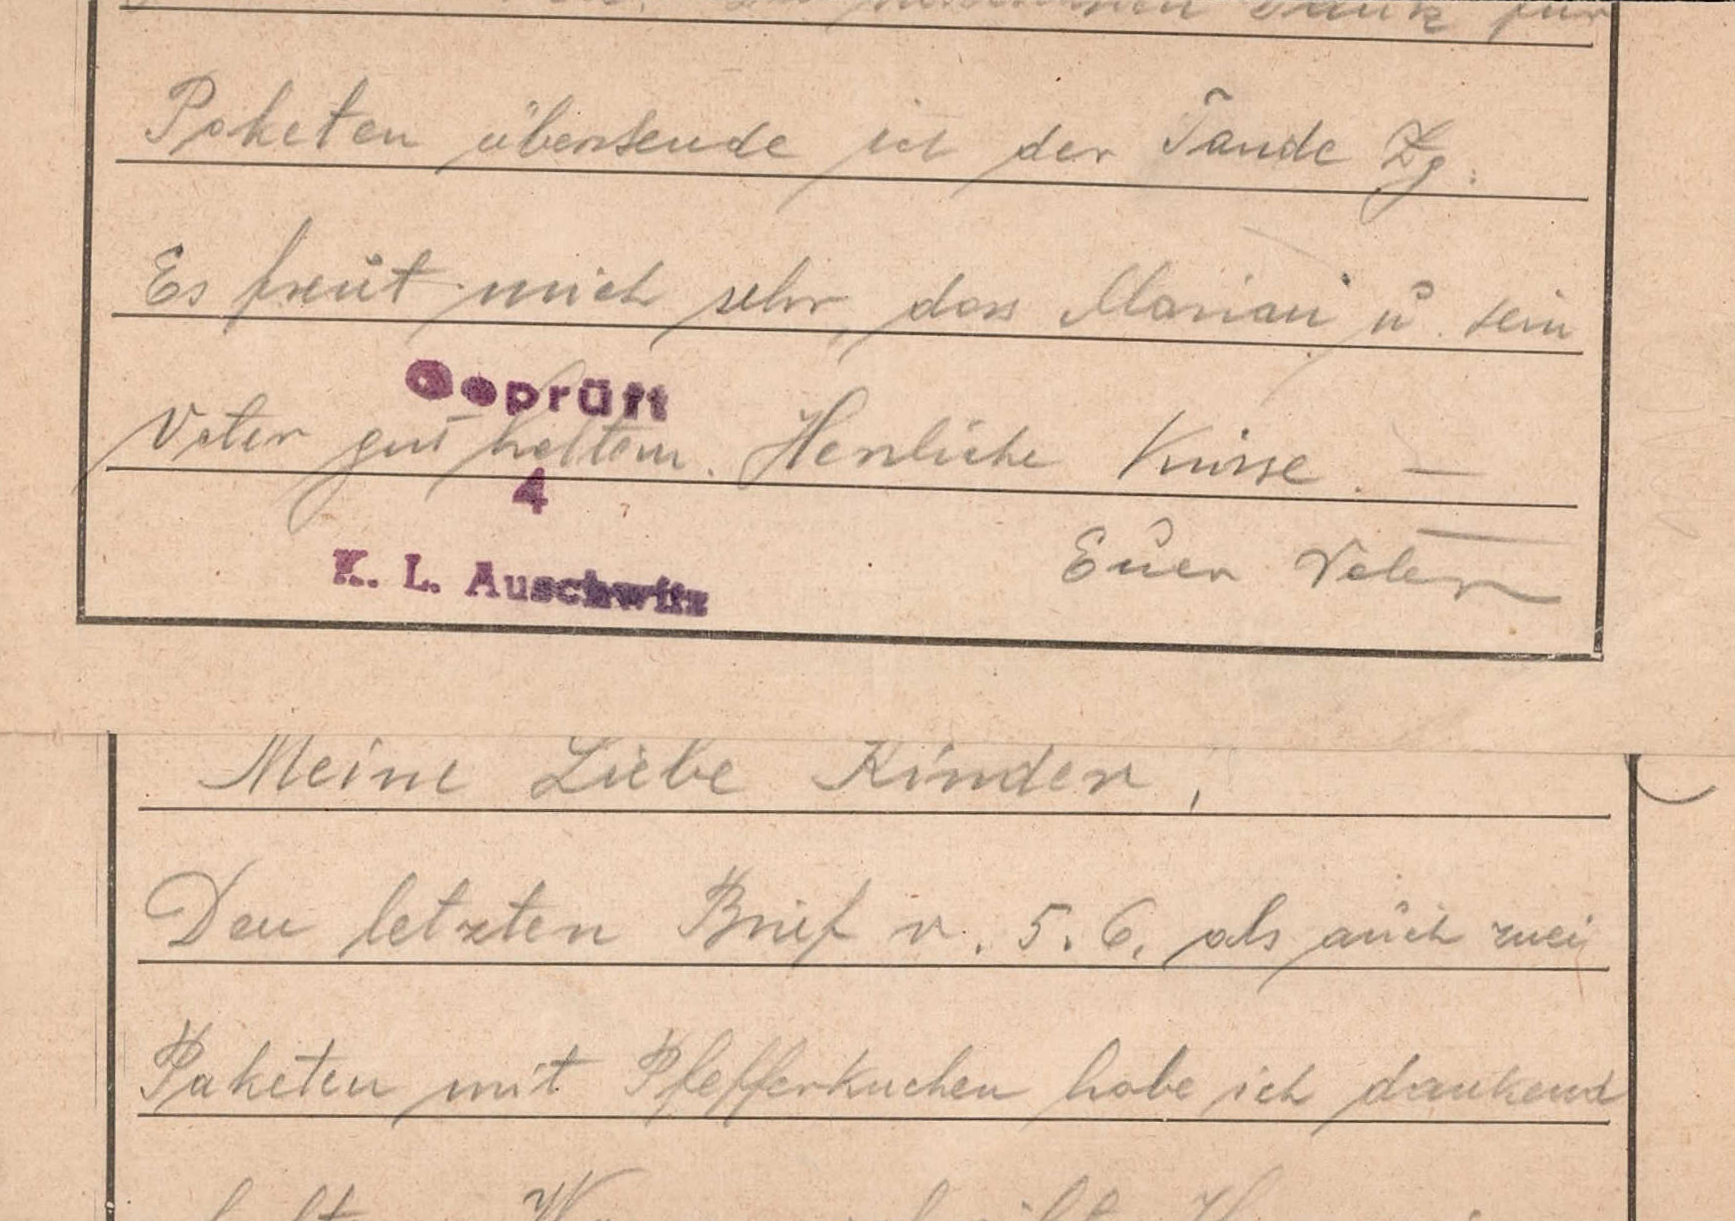 Dank für
Paketen übersende ich der Tande Zg.
Es freut mich sehr, dass Marian u. sein
Geprüft
Vater gut haltem. Herzliche Küsse. —
4
Euer Vater
K. L. Auschwitz
Meine Liebe Kinder,
Den letzten Brief v. 5. 6. als auch zwei
Paketen mit Pfefferkuchen habe ich dankend